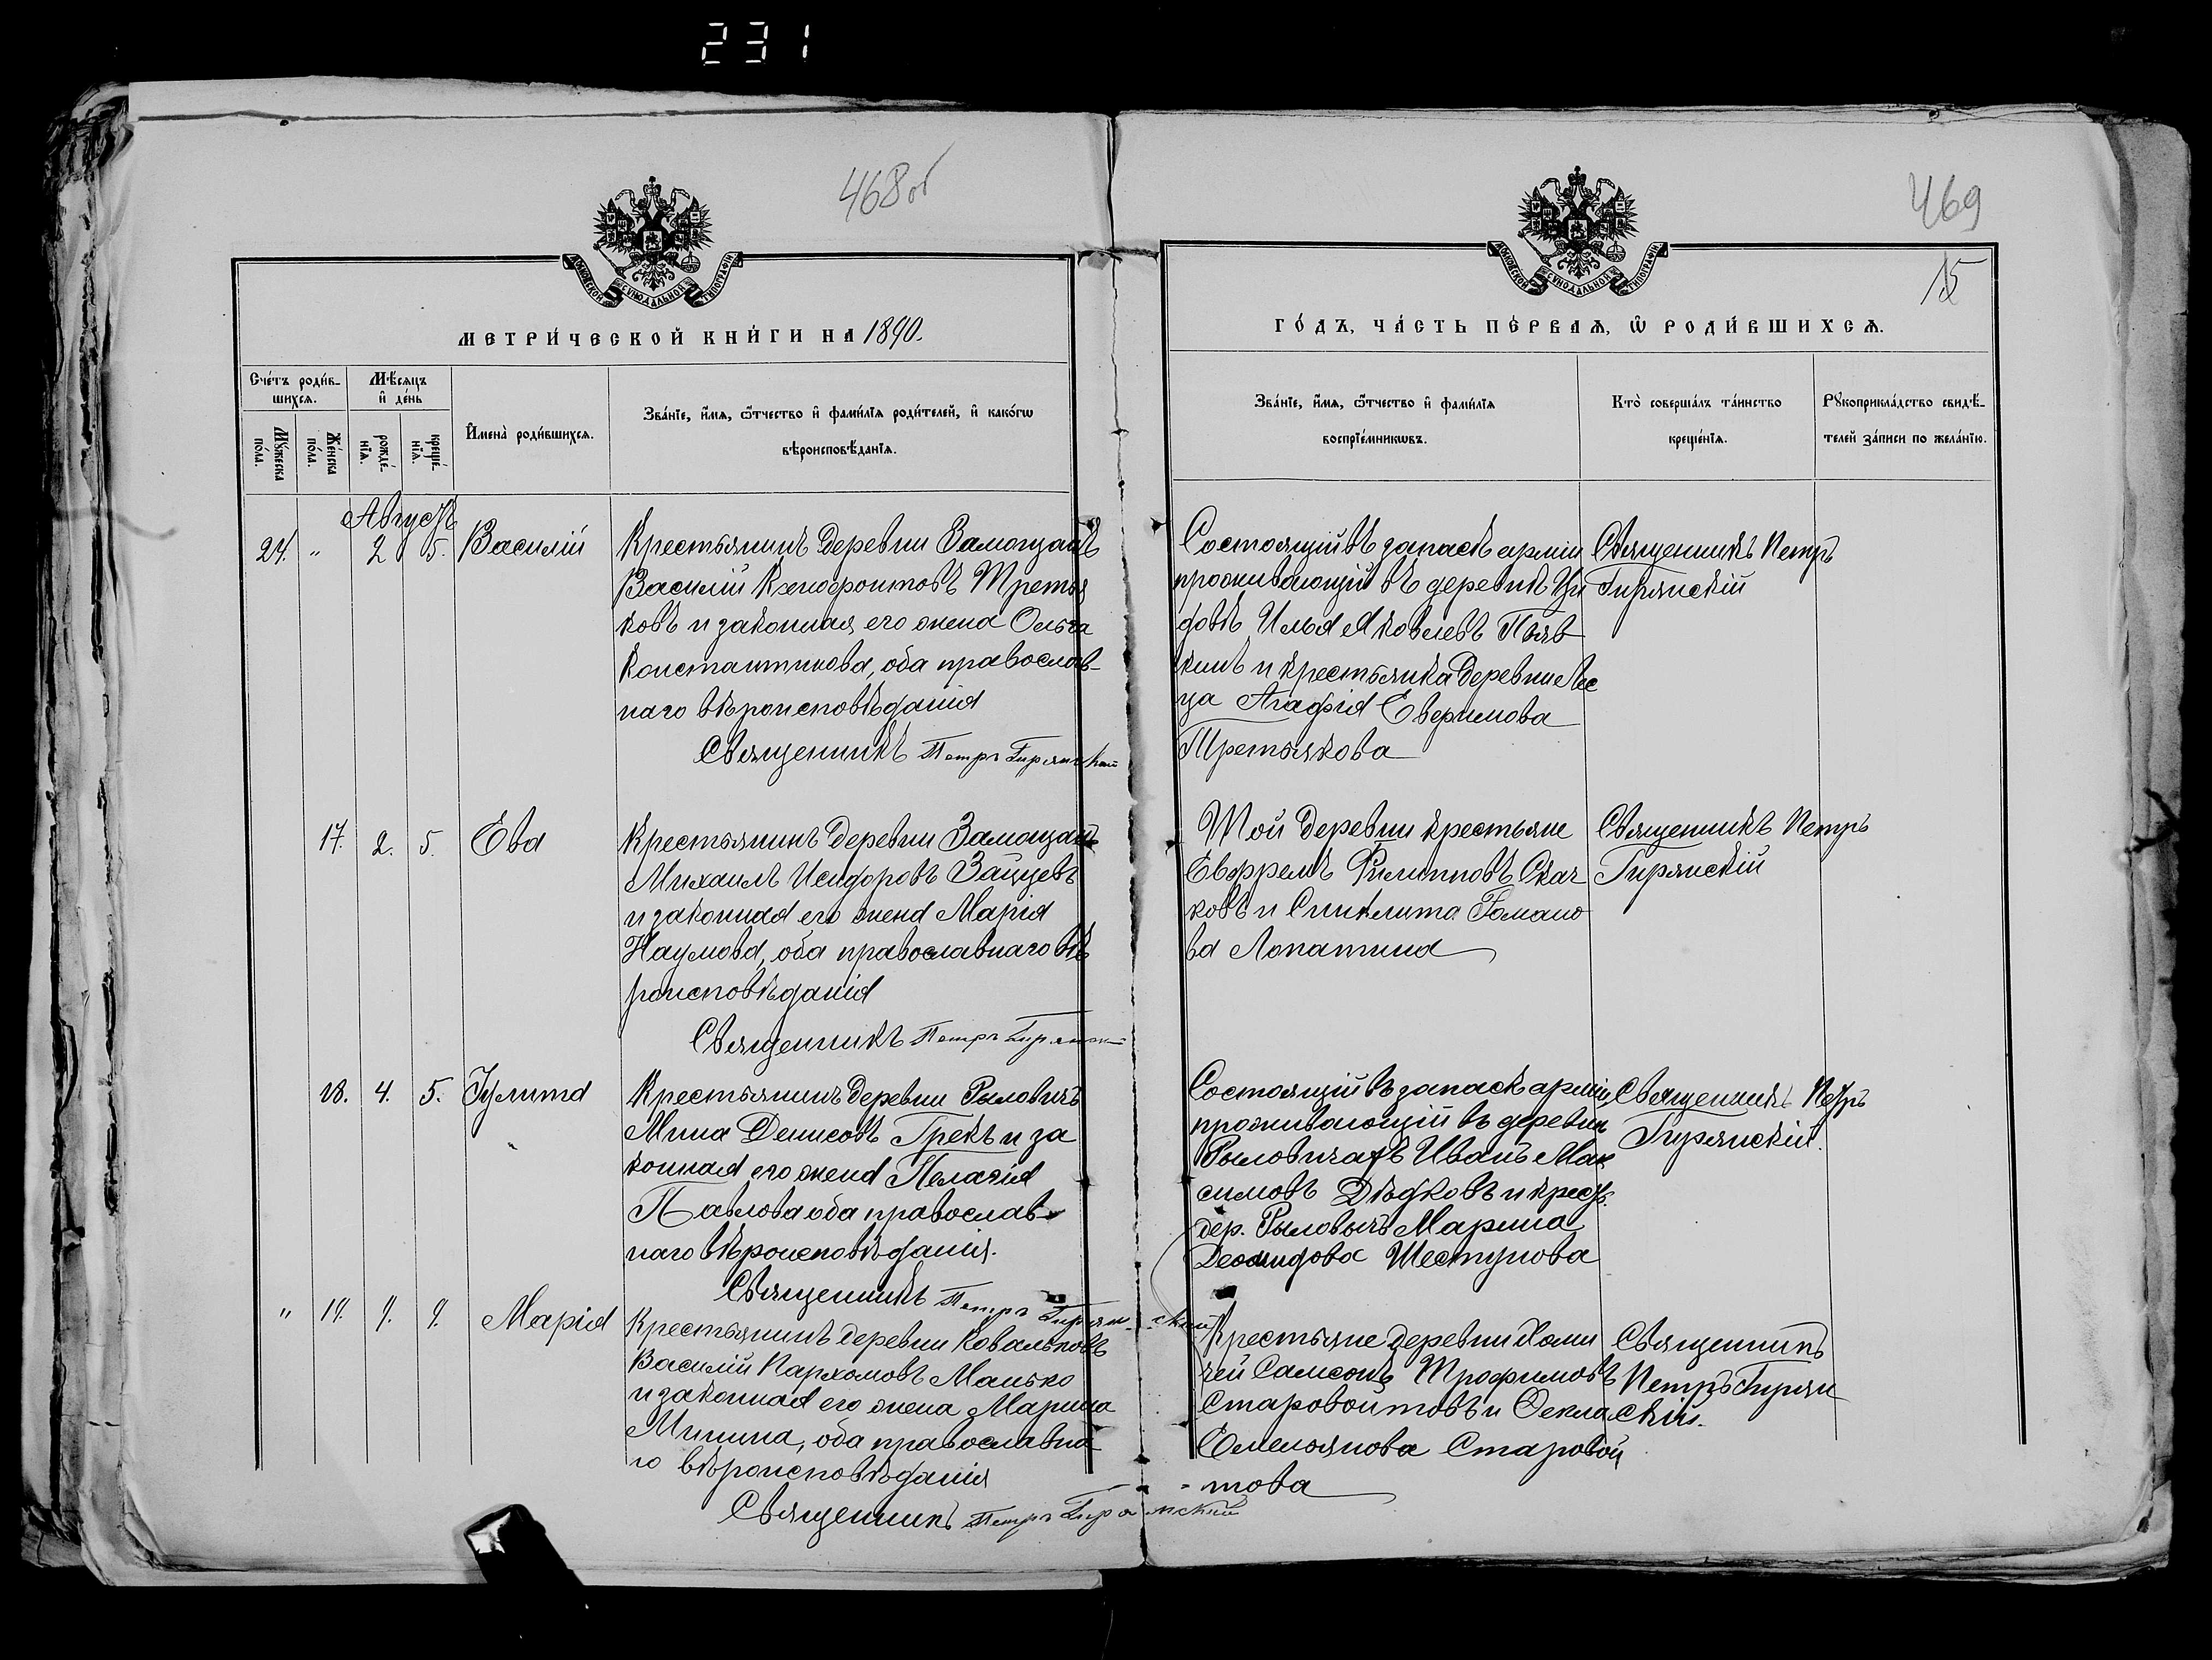 231
468об
469
15
МОСКОВСКОЙ СУНОДАЛЬНОЙ ТИПОГРАФІИ
МОСКОВСКОЙ СУНОДАЛЬНОЙ ТИПОГРАФІИ
МЕТРИ́ЧЕСКОЙ КНИ́ГИ НА 1890.
ГО́ДЪ, ЧА́СТЬ ПЕ́РВАѦ, Ѿ РОДИ́ВШИХСѦ.
Сче́тъ роди́в-
шихсѧ.
Мѣ́сяцъ
и҆ де́нь
Мꙋ́жеска по́ла.
Же́нска по́ла.
рожде́-
нїѧ.
креще́-
нїѧ.
И҆мена̀ роди́вшихсѧ.
Зва́нїе, и҆́мѧ, ѻ҆́тчество и҆ фами́лїѧ роди́телей, и҆ како́гѡ
вѣроисповѣ́данїѧ.
Зва́нїе, и҆́мѧ, ѻ҆́тчество и҆ фами́лїѧ
воспрїе́мникѡвъ.
Кто̀ соверша́лъ та́инство
креще́нїѧ.
Рꙋкоприкла́дство свидѣ́-
телей за́писи по жела́нїю.
Августъ
24. " 2 5. Василій
Крестьянинъ деревни Замощанъ
Василій Ксенофонтовъ Третья
ковъ и законная его жена Ольга
Константинова, оба православ-
наго вѣроисповѣданія
Священникъ Петръ Гирянскій
Состоящій въ запасѣ арміи
проживающій въ деревнѣ
Илья Яковлевъ
и крестьянка деревни
Агафія
Третьякова
Священникъ Петръ
Гирянскій
17. 2. 5. Ева
Крестьянинъ деревни Замощанъ
Михаилъ Исидоровъ Зайцевъ
и законная его жена Марія
Наумова, оба православнаго вѣ
роисповѣданія
Священникъ Петръ Гирянскій
Той деревни крестьяне
Евфремъ Филипповъ Скач
ковъ и Синклита Романо
ва Лопатина
Священникъ Петръ
Гирянскій
18. 4. 5. Іулита
Крестьянинъ деревни Рыловичъ
Мина Денисовъ Грекъ и за
конная его жена Пелагія
Павлова оба православ-
наго вѣроисповѣданія.
Священникъ Петръ Гирянскій
Состоящій въ запасѣ арміи
проживающій въ деревни
Рыловичахъ Иванъ Мак
симовъ Дѣдковъ и крест.
дер. Рыловичъ Марина
Шестунова
Священникъ Петръ
Гирянскій.
" 19. 9. 9. Марія
Крестьянинъ деревни Ковальковъ
Василій Пархомовъ Манько
и законная его жена Марина
Минина, оба православна-
го вѣроисповѣданія
Священникъ Петръ Гирянскій
Крестьяне деревни Хоми
чей Самсонъ Трофимовъ
Старовойтовъ и Ѳекла
Емельянова Старовой
- това
Священникъ
Петръ Гирян
скій.